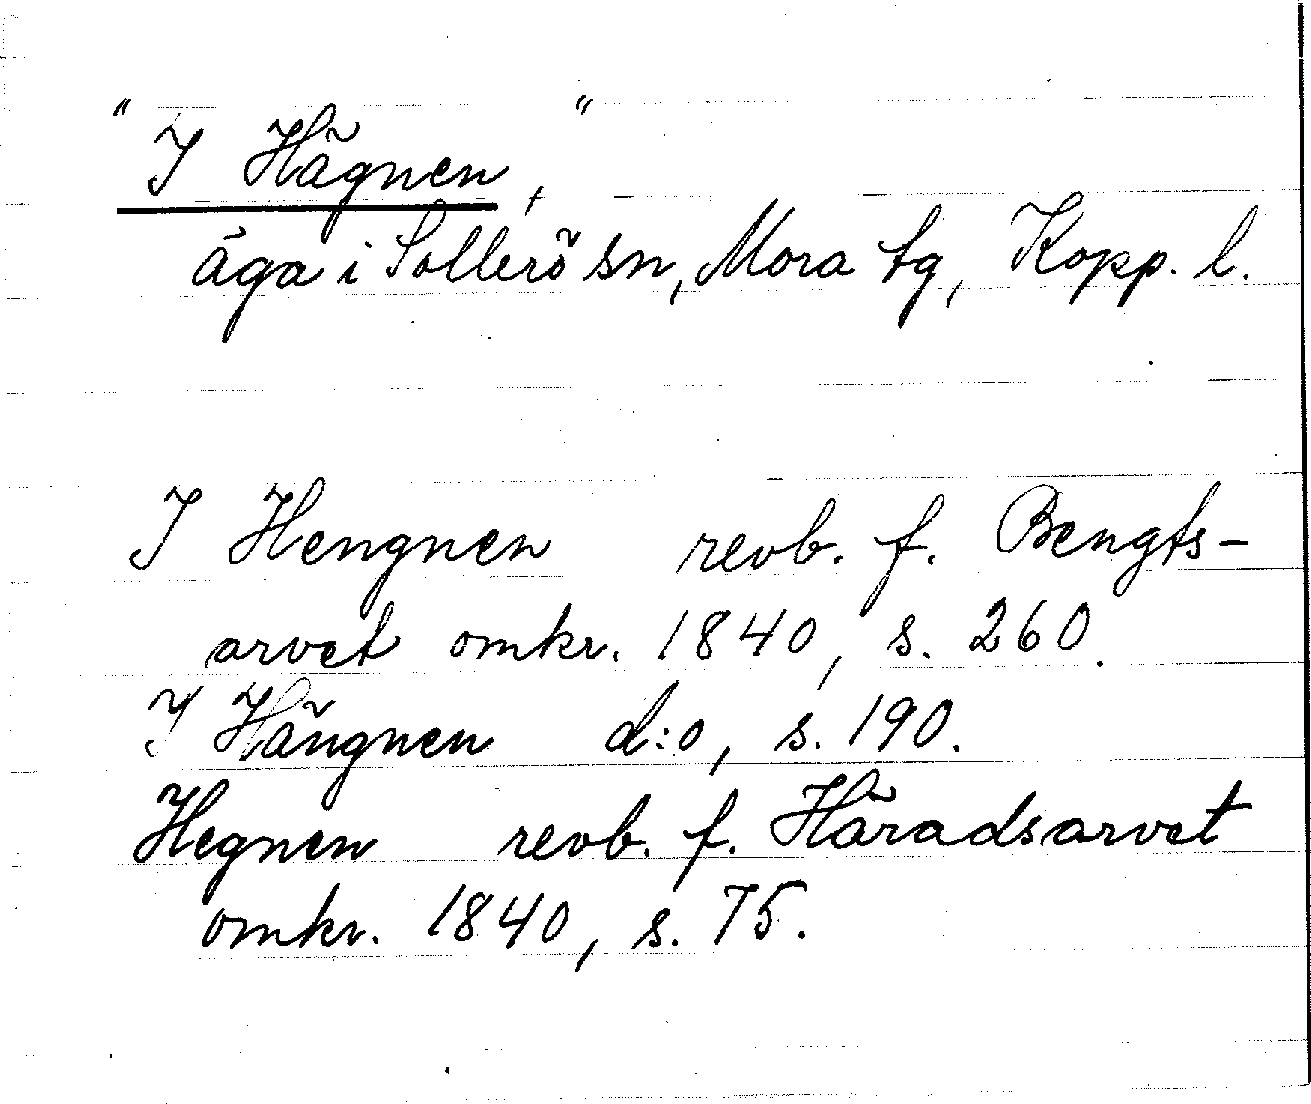 "I Hägnen",
äga i Sollerö sn, Mora tg, Kopp. l.
I Hengnen revb. f. Bengts-
arvet omkr. 1840, s. 260.
I Hängnen d:o, s. 190.
Hegnen revb. f. Häradsarvet
omkr. 1840, s. 75.